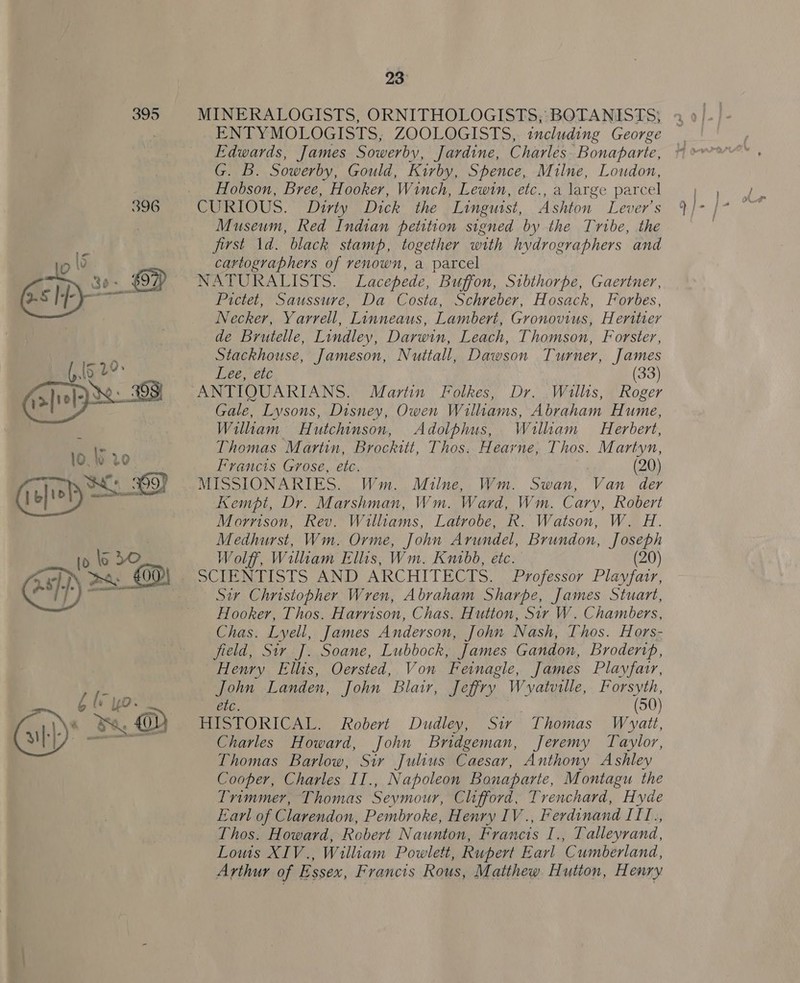 23
395 MINERALOGISTS, ORNITHOLOGISTS, BOTANISTS;
ENTYMOLOGISTS, ZOOLOGISTS, including George
Edwards, James Sowerby, Jardine, Charles Bonaparte,
G. B. Sowerby, Gould, Kirby, Spence, Milne, Loudon,
Hobson, Bree, Hooker, Winch, Lewin, etc., a large parcel
396 CURIOUS. Dirty Dick the Linguist, Ashton Lever's
Museum, Red Indian petition signed by the Tribe, the
first 1d. black stamp, together with hydrographers and
cartographers of renown, a parcel
397 NATURALISTS. Lacepede, Buffon, Sibthorpe, Gaertner,
Pictet, Saussure, Da Costa, Schreber, Hosack, Forbes,
Necker, Yarrell, Linneaus, Lambert, Gronovius, Heritier
de Brutelle, Lindley, Darwin, Leach, Thomson, Forster,
Stackhouse, Jameson, Nuttall, Dawson Turner, James
Lee, etc (33)
398 ANTIQUARIANS. Martin Folkes, Dr. Willis, Roger
Gale, Lysons, Disney, Owen Williams, Abraham Hume,
William Hutchinson, Adolphus, William Herbert,
Thomas Martin, Brockitt, Thos. Hearne, Thos. Martyn,
Francis Grose, etc. (20)
399 MISSIONARIES. Wm. Milne, Wm. Swan, Van der
Kempt, Dr. Marshman, Wm. Ward, Wm. Cary, Robert
Morrison, Rev. Williams, Latrobe, R. Watson, W. H.
Medhurst, Wm. Orme, John Arundel, Brundon, Joseph
Wolff, William Ellis, Wm. Knibb, etc. (20)
400 SCIENTISTS AND ARCHITECTS. Professor Playfair,
Sir Christopher Wren, Abraham Sharpe, James Stuart,
Hooker, Thos. Harrison, Chas. Hutton, Sir W. Chambers,
Chas. Lyell, James Anderson, John Nash, Thos. Hors-
field, Sir J. Soane, Lubbock, James Gandon, Broderip,
Henry Ellis, Oersted, Von Feinagle, James Playfair,
John Landen, John Blair, Jeffry Wyatville, Forsyth,
etc. (50)
401 HISTORICAL. Robert Dudley, Sir Thomas Wyatt,
Charles Howard, John Bridgeman, Jeremy Taylor,
Thomas Barlow, Sir Julius Caesar, Anthony Ashley
Cooper, Charles II., Napoleon Bonaparte, Montagu the
Trimmer, Thomas Seymour, Clifford, Trenchard, Hyde
Earl of Clarendon, Pembroke, Henry IV., Ferdinand III.,
Thos. Howard, Robert Naunton, Francis I., Talleyrand,
Louis XIV., William Powlett, Rupert Earl Cumberland,
Arthur of Essex, Francis Rous, Matthew Hutton, Henry